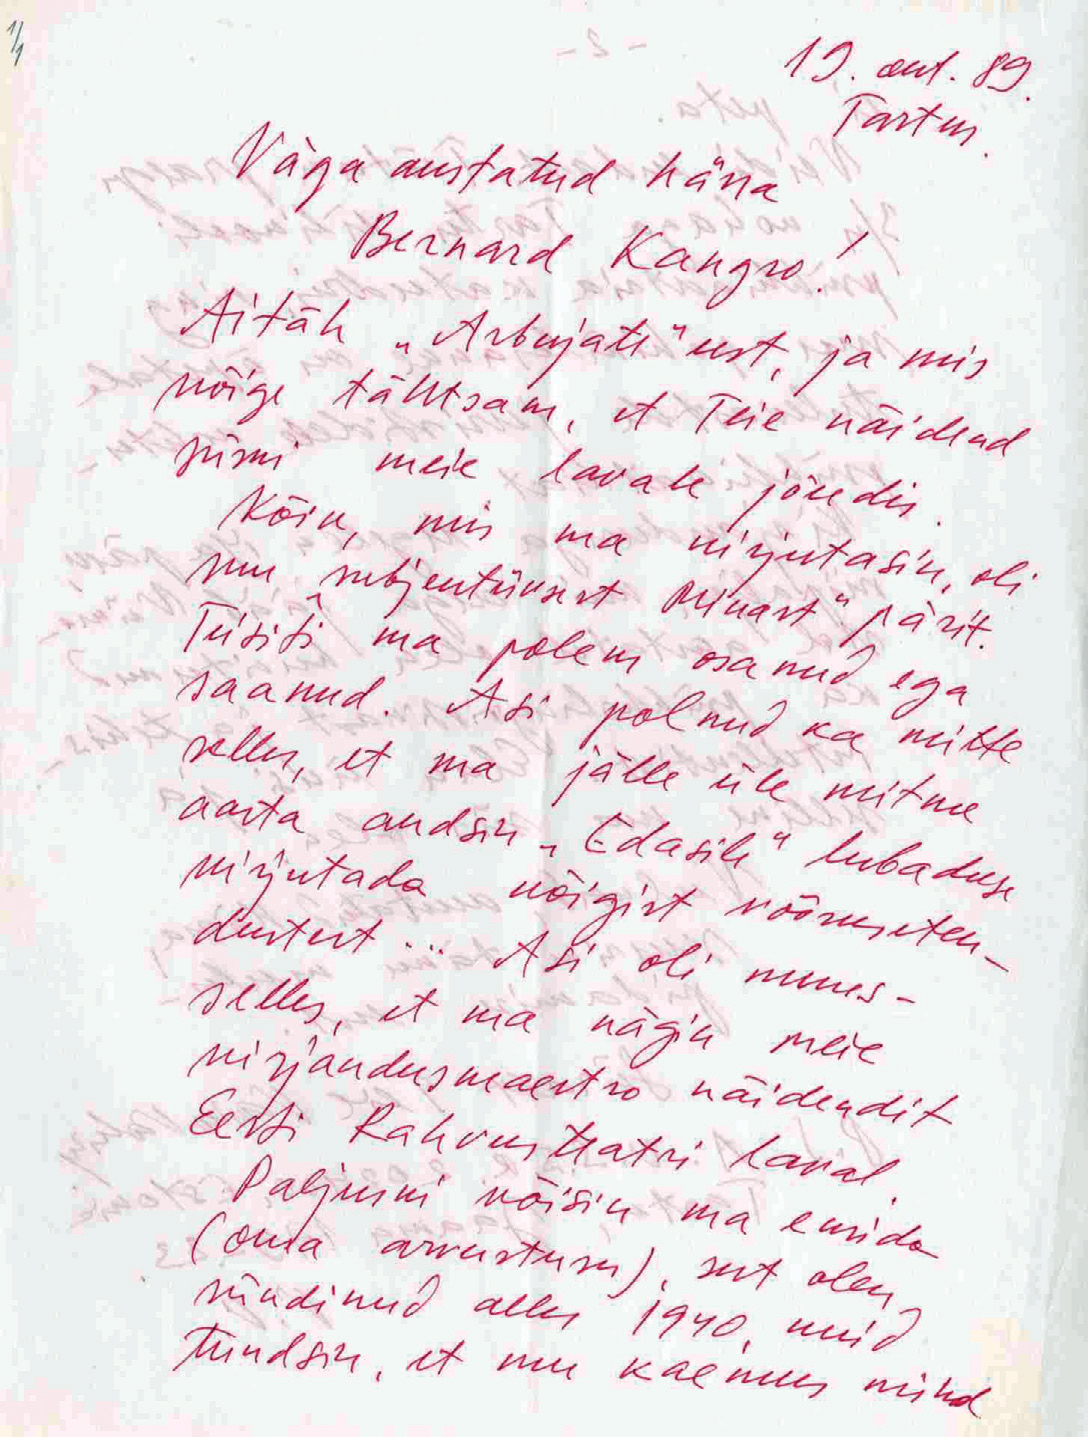 1/1
19. okt. 89.
Tartus.
Väga austatud härra
Bernard Kangro!
Aitäh „Arbujate" eest, ja mis
kõige tähtsam, et Teie näidend
siiski meie lavale jõudis.
Kõik, mis ma kirjutasin, oli
mu „subjektiivsest Minast" pärit.
Teisiti ma polem osanud ega
saanud. Asi polnud ka mitte
selles, et ma jälle üle mitme
aasta andsin „Edasile" lubaduse
kirjutada kõigist rõõmsaten-
dustest... Asi oli
selles, et ma nägin meie
kirjandusmaestro näidendit
Eesti Rahvusteatri laval.
Paljuski võisin ma eksida
(oma arvustuses), sest olen
sündinud alles 1940, kuid
tundsin, et mu kaemus mind